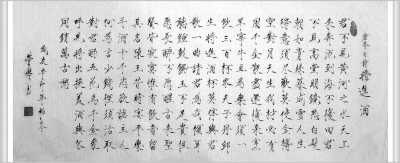 將進酒
君不見黃河之水天上
來奔流到海不復回君
不見高堂明鏡悲白髮
朝如青絲暮成雪人生
得意須盡歡莫使金樽
空對月天生我材必有
用千金散盡還復來烹
羊宰牛且為樂會須一
飲三百杯岑夫子丹邱
生將進酒杯莫停與君
歌一曲請君為我傾耳
聽鐘鼓饌玉不足貴但
願長醉不願醒古來聖
賢皆寂寞惟有飲者留
其名陳王昔時宴平樂
斗酒十千恣歡謔主人
何為言少錢徑須沽取
對君酌五花馬千金裘
呼兒將出換美酒與爾
同銷萬古愁